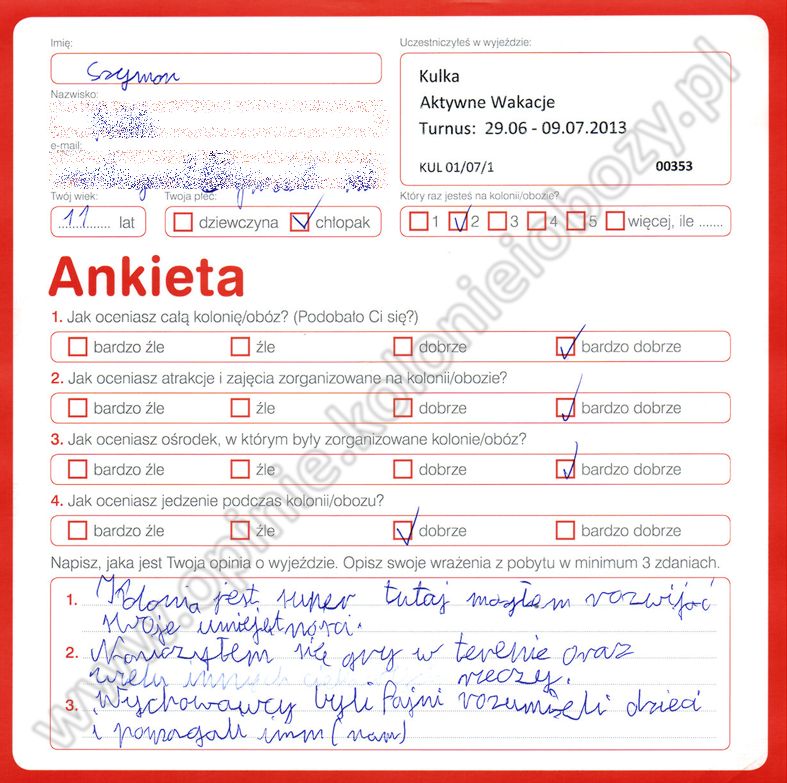 Imię:
Szymon
Uczestniczyłeś w wyjeździe:
Kulka
Aktywne Wakacje
Turnus: 29.06 - 09.07.2013
KUL 01/07/1 00353
Nazwisko:
e-mail:
Twój wiek:
11 lat
Twoja płeć:
dziewczyna chłopak
Który raz jesteś na kolonii/obozie?
1 2 3 4 5 więcej, ile .......
Ankieta
1. Jak oceniasz całą kolonię/obóz? (Podobało Ci się?)
bardzo źle źle dobrze bardzo dobrze
2. Jak oceniasz atrakcje i zajęcia zorganizowane na kolonii/obozie?
bardzo źle źle dobrze bardzo dobrze
3. Jak oceniasz ośrodek, w którym były zorganizowane kolonie/obóz?
bardzo źle źle dobrze bardzo dobrze
4. Jak oceniasz jedzenie podczas kolonii/obozu?
bardzo źle źle dobrze bardzo dobrze
Napisz, jaka jest Twoja opinia o wyjeździe. Opisz swoje wrażenia z pobytu w minimum 3 zdaniach.
1. Kolonia jest super tutaj mogłem rozwijać
swoje umiejętności.
2. Nauczyłem się gry w terenie oraz
wielu innych rzeczy.
3. Wychowawcy byli fajni rozumieli dzieci
i pomagali imm (nam)
www.opinie.kolonieiobozy.pl